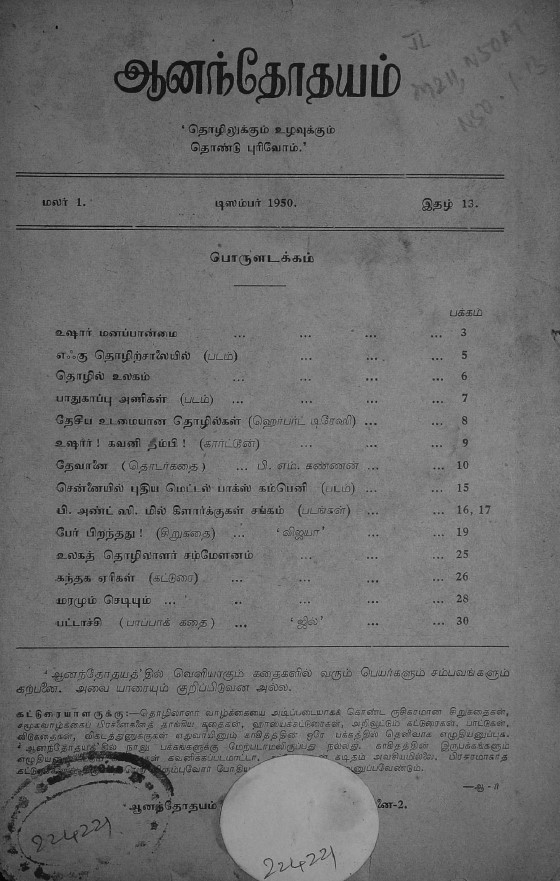 ஆனந்தோதயம்
'தொழிலுக்கும் உழவுக்கும்
தொண்டு புரிவோம்.'
மலர் 1. டிஸம்பர் 1950. இதழ் 13.
பொருளடக்கம்
பக்கம்
உஷார் மனப்பான்மை ... ... ... ... 3
எஃகு தொழிற்சாலையில் (படம்) ... ... ... 5
தொழில் உலகம் ... ... ... ... 6
பாதுகாப்பு அணிகள் (படம்) ... ... ... ... 7
தேசீய உடமையான தொழில்கள் (ஹெர்பர்ட் டிரேஸி) ... ... 8
உஷார்! கவனி தம்பி! (கார்ட்டூன்) ... ... ... 9
தேவானை (தொடர்கதை) ... பி. எம். கண்ணன் ... ... 10
சென்னையில் புதிய மெட்டல் பாக்ஸ் கம்பெனி (படம்) ... ... 15
பி. அண்ட் ஸி. மில் கிளார்க்குகள் சங்கம் (படங்கள்) ... ... 16, 17
பேர் பிறந்தது! (சிறுகதை) ... 'விஜயா' ... ... 19
உலகத் தொழிலாளர் சம்மேளனம் ... ... ... 25
கந்தக ஏரிகள் (கட்டுரை) ... ... ... ... 26
மரமும் செடியும் ... .. ... ... ... 28
பட்டாச்சி (பாப்பாக் கதை) ... 'ஜில்' ... ... 30
'ஆனந்தோதயத்'தில் வெளியாகும் கதைகளில் வரும் பெயர்களும் சம்பவங்களும்
கற்பனை. அவை யாரையும் குறிப்பிடுவன அல்ல.
கட்டுரையாளருக்கு:—தொழிலாளர் வாழ்க்கையை அடிப்படையாகக் கொண்ட ருசிகரமான சிறுகதைகள்,
சமூகவாழ்க்கைப் பிரச்னைகளைத் தாங்கிய கதைகள், ஹாஸ்யக்கட்டுரைகள், அறிவூட்டும் கட்டுரைகள், பாட்டுகள்,
விடுகதைகள், விகடத்துணுக்குகள் எதுவாயினும் காகிதத்தின் ஒரே பக்கத்தில் தெளிவாக எழுதியனுப்புக.
'ஆனந்தோதயத்'தில் நாலு பக்கங்களுக்கு மேற்படாமலிருப்பது நல்லது. காகிதத்தின் இருபக்கங்களும்
கவனிக்கப்படமாட்டா. கடிதம் அவசியமில்லை. பிரசுரமாகாத
—ஆ-ர்
'ஆனந்தோதயம் னை-2.
224221
224221